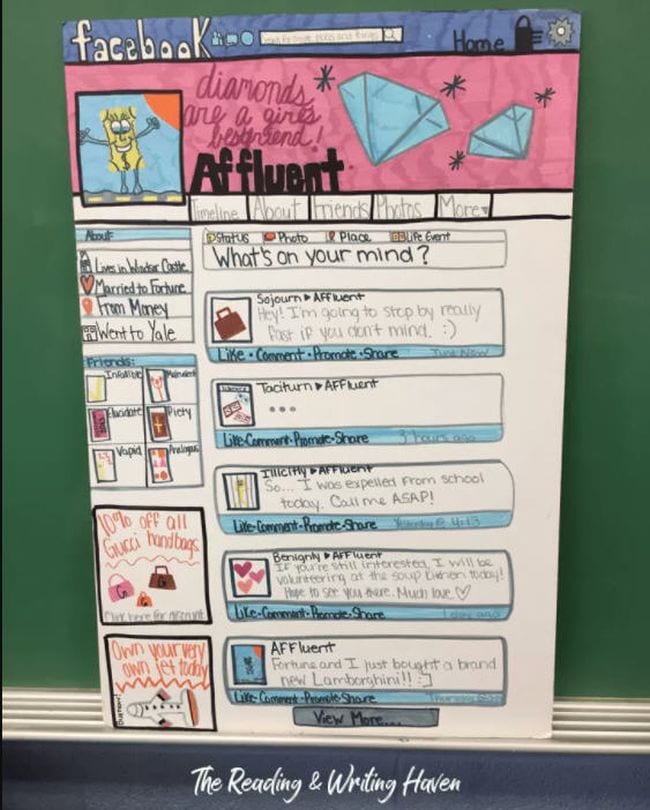 facebook
Home
diamonds
are a girls
bestfriend!
Affluent
Timeline About Friends Photos More
About:
Lives in Windsor Castle
Married to Fortune
From Money
Went to Yale
Friends:
Infallible
Elucidate Piety
Vapid Analogous
10% off all
Gucci handbags
G G G
Click here for discount
Own your very
own jet today
Status Photo Place Life Event
What's on your mind?
Sojourn ▸ AFFluent
Hey! I'm going to stop by really
fast if you don't mind. :)
Like • Comment • Promote • Share Just Now
Taciturn ▸ AFFluent
...
Like • Comment • Promote • Share 3 hours ago
Illicitly ▸ AFFluent
So... I was expelled from school
today. Call me ASAP!
Like • Comment • Promote • Share Yesterday @ 4:13
Benignly ▸ AFFluent
If you're still interested, I will be
volunteering at the soup kitchen today!
Hope to see you there. Much love ♡
Like • Comment • Promote • Share 1 day ago
AFFluent
Fortune and I just bought a brand
new Lamborghini!! :)
Like • Comment • Promote • Share
View More...
The Reading & Writing Haven